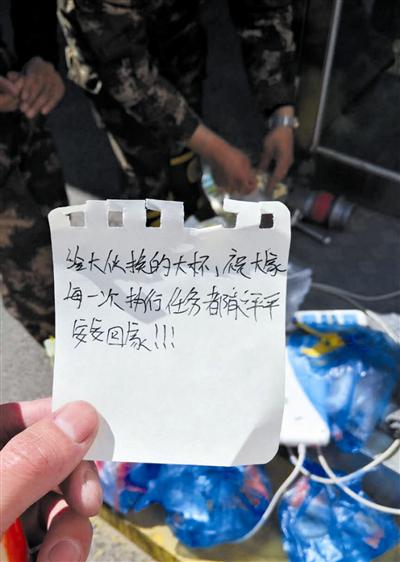 给大伙换的大杯，祝大家
每一次执行任务都能平平
安安回家!!!